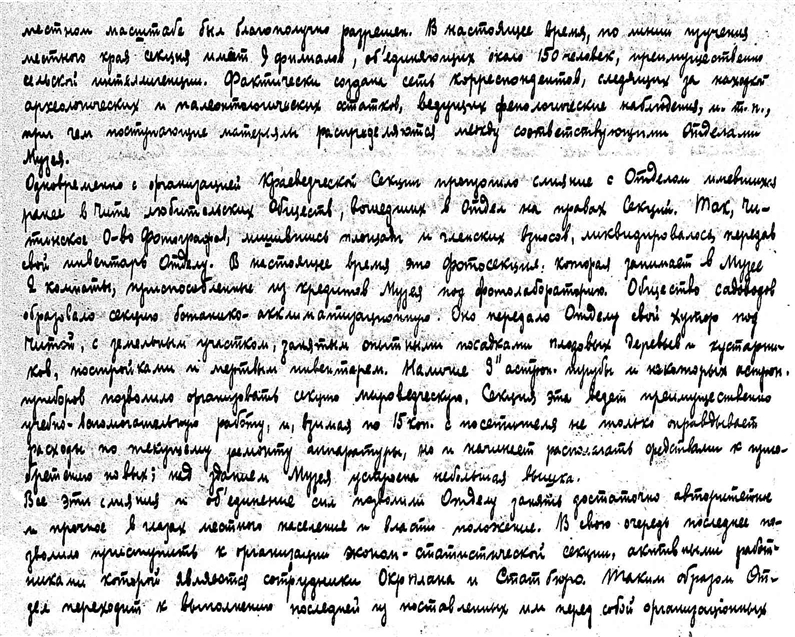 местном масштабе был благополучно разрешен. В настоящее время, по линии изучения
местного края секция имеет 9 филиалов, об'единяющих около 150 человек, преимущественно
сельской интеллигенции. Фактически создана сеть корреспондентов, следящих за находкой
археологических и палеонтологических остатков, ведущих фенологические наблюдения, и. т. п.,
при чем поступающие материялы распределяются между соответствующими Отделами
Музея.
Одновременно с организацией Краеведческой Секции произошло слияние с Отделом имевшихся
ранее в Чите любительских Обществ, вошедших в Отдел на правах Секций. Так, Чи-
тинское О-во Фотографов, лишившись площади и членских взносов, ликвидировалось, передав
свой инвентарь Отделу. В настоящее время это фотосекция, которая занимает в Музее
2 комнаты, приспособленные из кредитов Музея под фотолабораторию. Общество садоводов
образовало секцию ботанико-акклиматизационную. Оно передало Отделу свой хутор под
Читой, с земельным участком, занятым опытными посадками плодовых деревьев и кустарни-
ков, постройками и мертвым инвентарем. Наличие 3" астрон. трубы и некоторых астрон.
приборов позволило организовать секцию мироведческую. Секция эта ведет преимущественно
учебно-вспомогательную работу, и, взимая по 15 коп. с посетителя не только оправдывает
расходы по текущему ремонту аппаратуры, но и начинает располагать средствами к прио-
бретению новых; над зданием Музея устроена небольшая вышка.
Все эти слияния и об'единение сил позволили Отделу занять достаточно авторитетное
и прочное в глазах местного население и власти положение. В свою очередь последнее по-
зволило приступить к организации эконом-статистической секции, активными работ-
никами которой являются сотрудники Окрплана и Статбюро. Таким образом От-
дел переходит к выполнению последней из поставленных им перед собой организационных